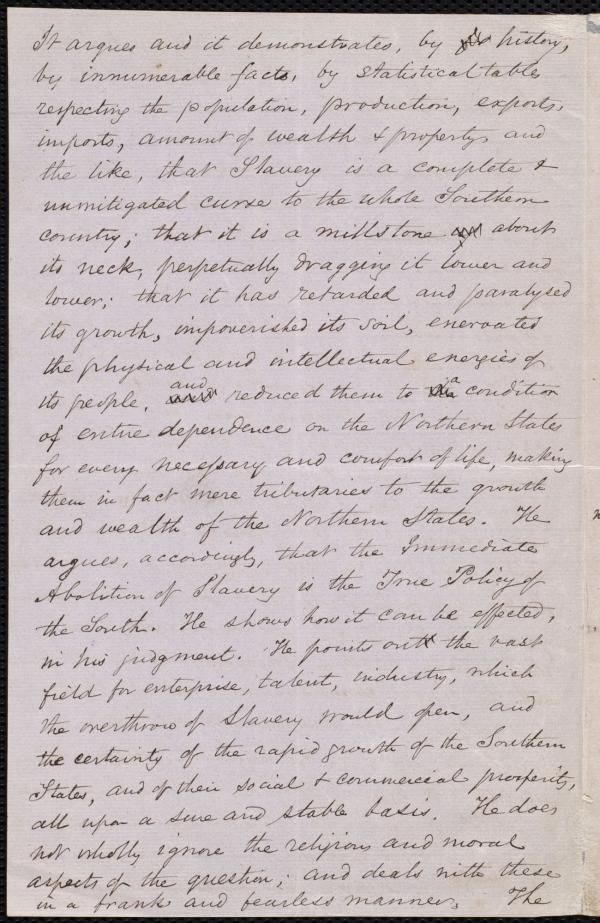 It argues and it demonstrates, by history,
by innumerable facts, by statistical tables
respecting the population, production, exports,
imports, amount of wealth & property, and
the like, that Slavery is a complete &
unmitigated curse to the whole Southern
country; that it is a millstone about
its neck, perpetually dragging it lower and
lower; that it has retarded and paralysed
its growth, impoverished its soil, enervated
the physical and intellectual energies of
its people, and reduced them to a condition
of entire dependence on the Northern States
for every necessary and comfort of life, making
them in fact mere tributaries to the growth
and wealth of the Northern States. He
argues, accordingly, that the Immediate
Abolition of Slavery is the True Policy of
the South. He shows how it can be effected,
in his judgment. He points out the vast
field for enterprise, talent, industry, which
the overthrow of Slavery would open, and
the certainty of the rapid growth of the Southern
States, and of their social & commercial prosperity,
all upon a sure and stable basis. He does
not wholly ignore the religious and moral
aspects of the question; and deals with these
in a frank and fearless manner. The